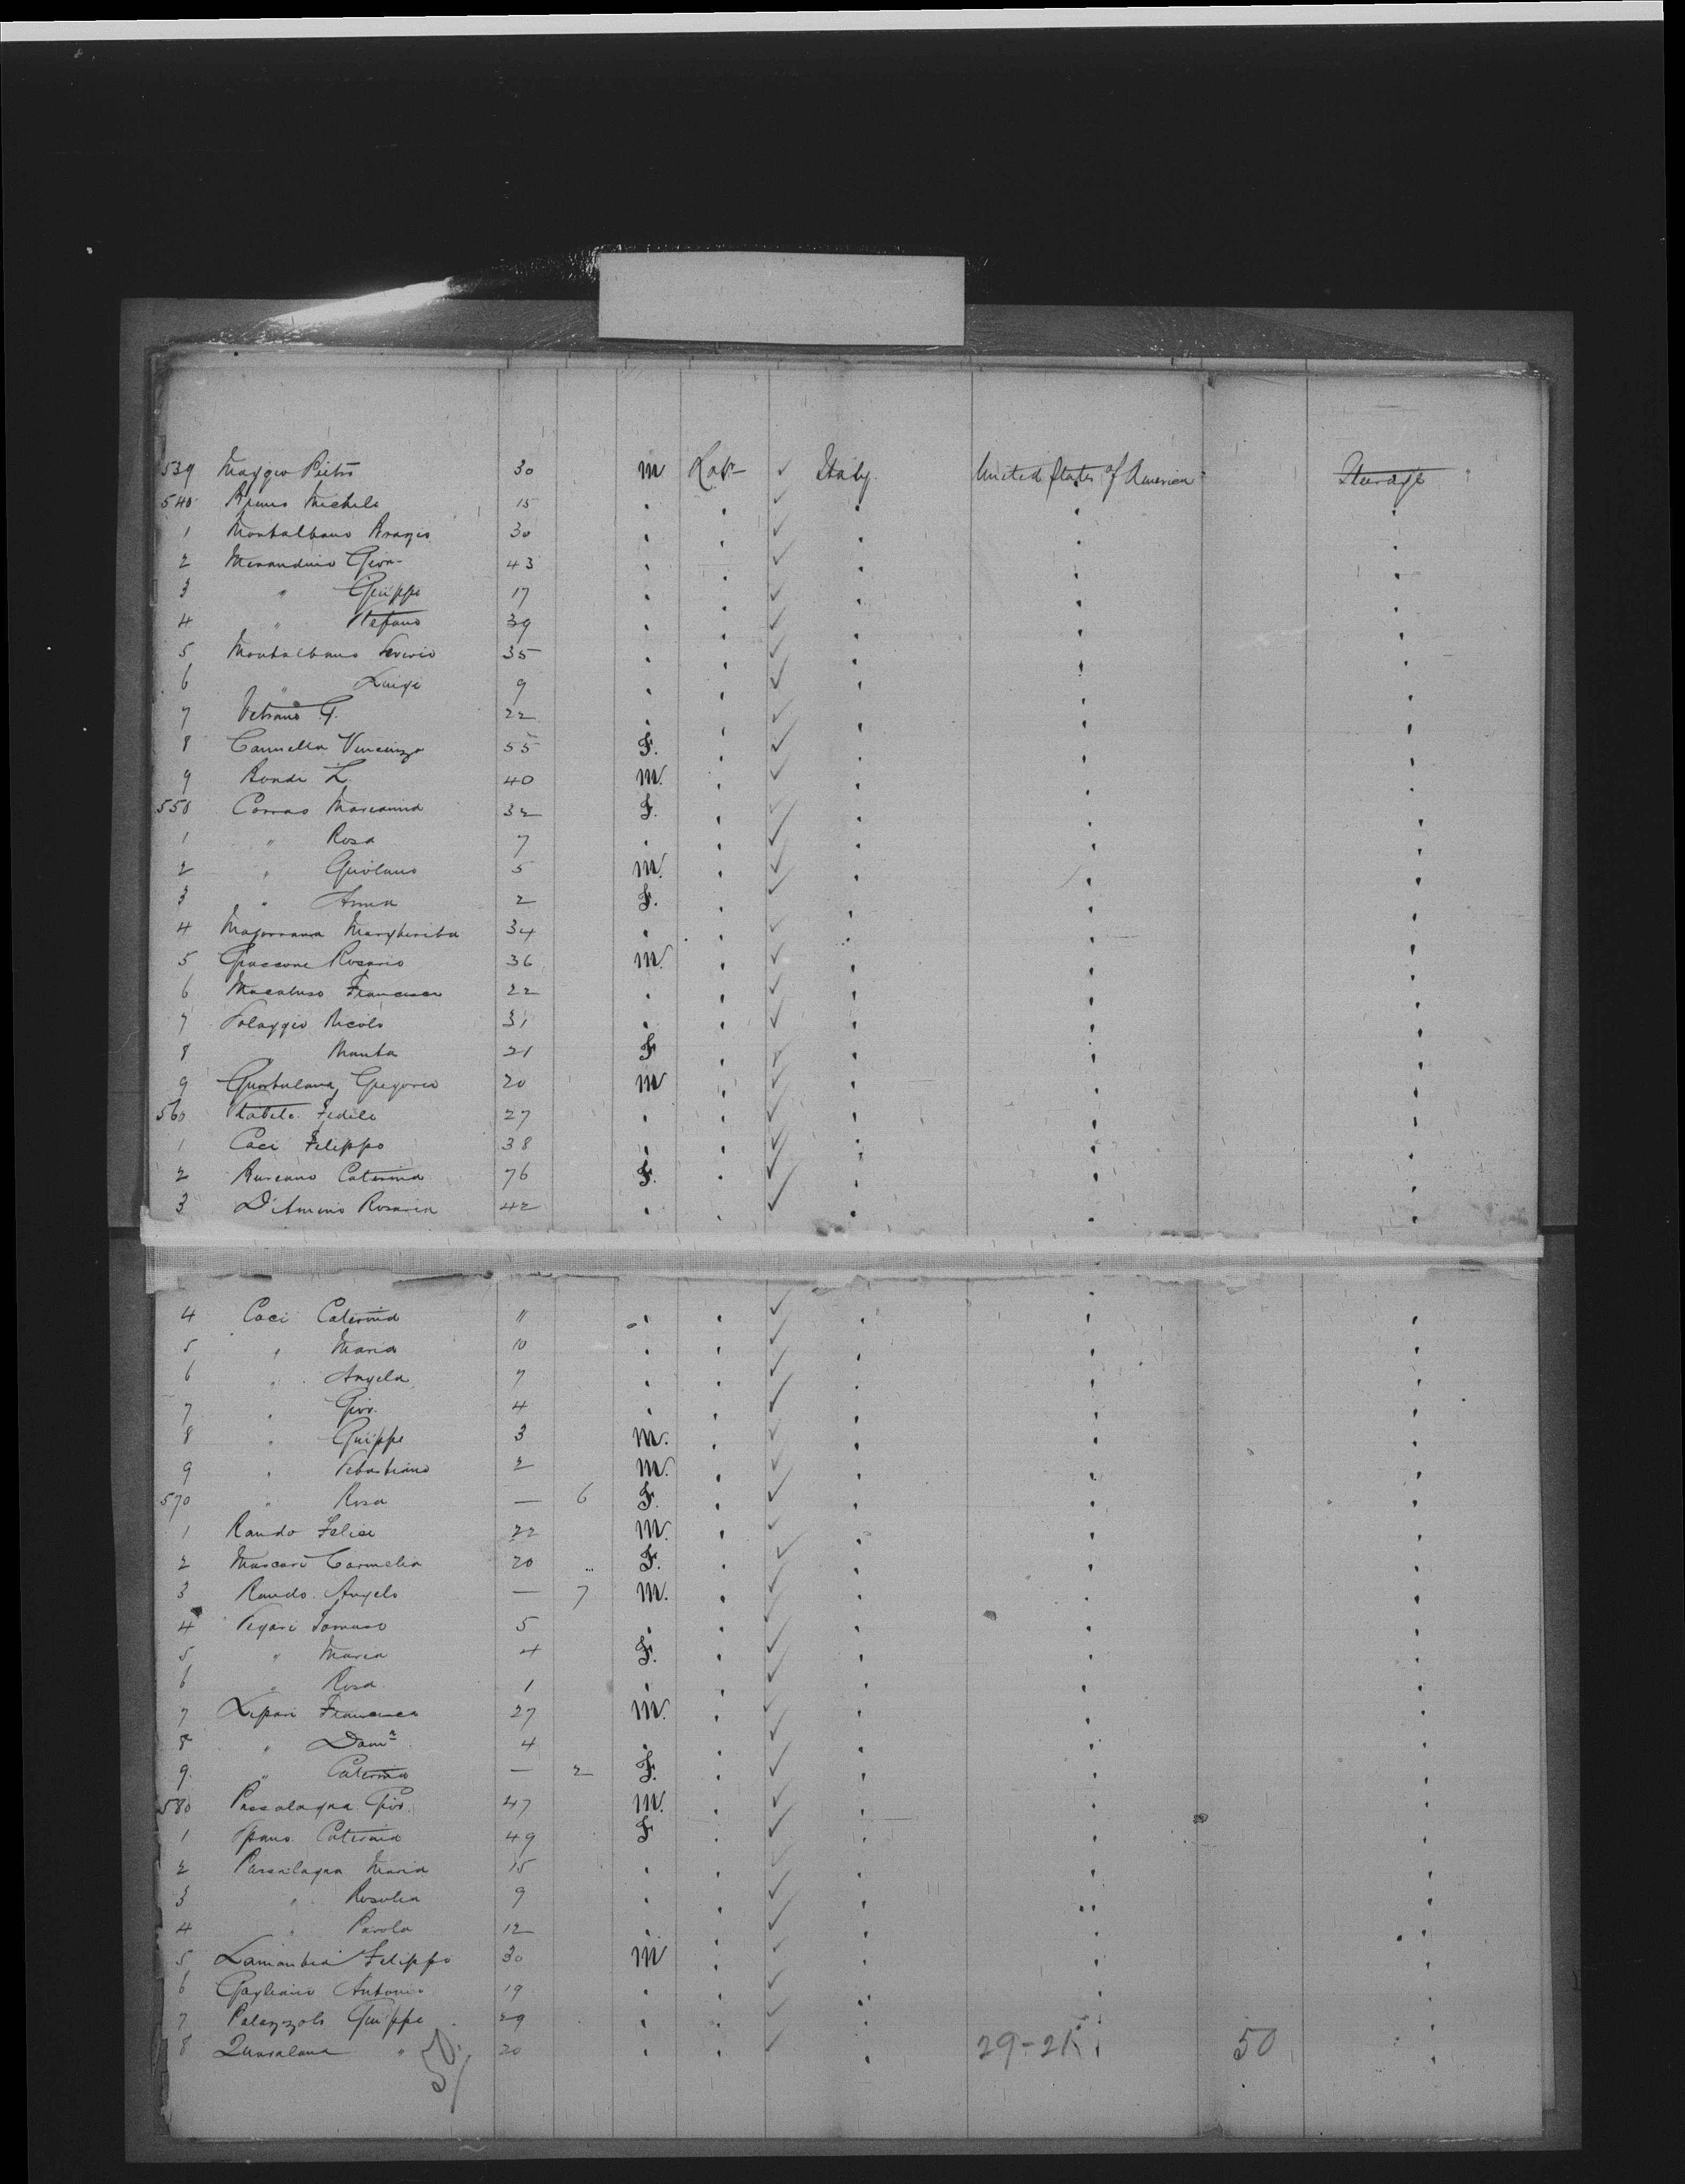 539 Maggio Pietro 30 m Labr ✓ Italy United States of America Steerage
540 Bruno Michele 15 " " ✓ " " "
1 Montalbano Brazio 30 " " ✓ " " "
2 Mirandino Giov- 43 " " ✓ " " "
3 " Guippe 17 " " ✓ " " "
4 " Stefano 39 " " ✓ " " "
5 Montalbano Saverio 35 " " ✓ " " "
6 " Luigi 9 " " ✓ " " "
7 Vetrano G. 22 " " ✓ " " "
8 Cannella Vincenza 55 F. " ✓ " " "
9 Bondi L. 40 m. " ✓ " " "
550 Corrao Marianna 32 F. " ✓ " " "
1 " Rosa 7 " " ✓ " " "
2 " Girolamo 5 m. " ✓ " " "
3 " Anna 2 F. " ✓ " " "
4 Majorana Margherita 34 " " ✓ " " "
5 Rosario 36 m. " ✓ " " "
6 Macaluso Francesco 22 " " ✓ " " "
7 Nicolo 31 " " ✓ " " "
8 21 F " ✓ " " "
9 Gregorio 20 m " ✓ " " "
560 Fedele 27 " " ✓ " " "
1 Caci Filippo 38 " " ✓ " " "
2 Caterina 76 F. " ✓ " " "
3 Rosaria 42 " " ✓ " " "
4 Caci Caterina 11 " " ✓ " " "
5 " Maria 10 " " ✓ " " "
6 " Angela 7 " " ✓ " " "
7 " Giov. 4 " " ✓ " " "
8 " Guippe 3 m. " ✓ " " "
9 " Sebastiano 2 m. " ✓ " " "
570 " Rosa — 6 F. " ✓ " " "
1 Rando Felice 22 m. " ✓ " " "
2 Muscari Carmela 20 F. " ✓ " " "
3 Rando Angelo — 7 m. " ✓ " " "
4 Tomaso 5 " " ✓ " " "
5 " Maria 4 F. " ✓ " " "
6 " Rosa 1 " " ✓ " " "
7 Lipari Francesco 27 m. " ✓ " " "
8 " Domco 4 " " ✓ " " "
9 " Caterina — 2 F. " ✓ " " "
580 Passalaqua Giov. 47 m. " ✓ " " "
1 Spano Caterina 49 F " ✓ " " "
2 Passalaqua Maria 15 " " ✓ " " "
3 " Rosolia 9 " " ✓ " " "
4 " Paola 12 " " ✓ " " "
5 Lamantia Filippo 30 m " ✓ " " "
6 Gagliano Antonio 19 " " ✓ " " "
7 Palazzolo Guippe 29 " " ✓ " " "
8 " 20 " " ✓ " 29-21 " 50 "
50